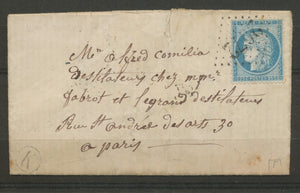 Mr alfred Comilia
Destilateurs chez mmrs
Jabrot et legrand destilateurs
Rue St andrée des arts 30
a paris